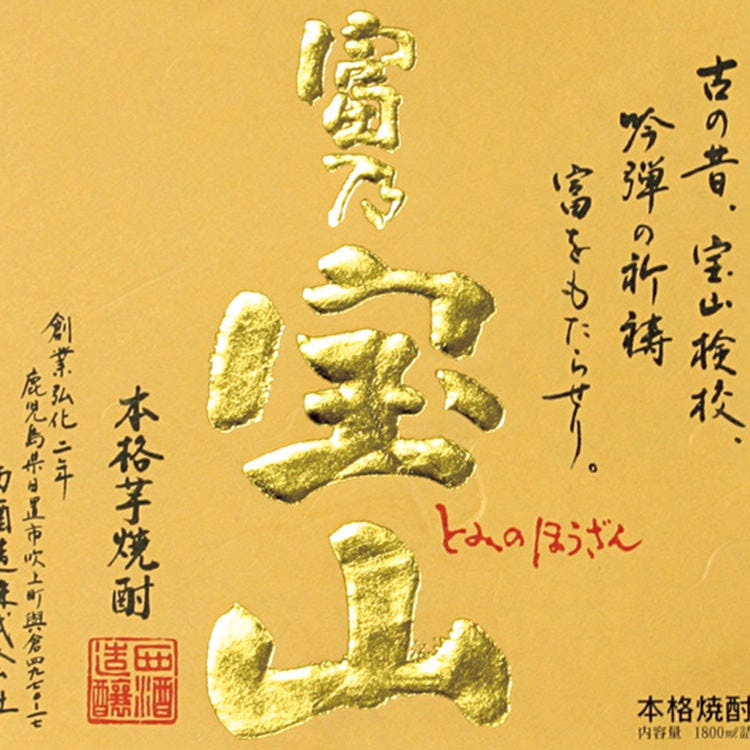 富乃
宝山
とみのほうざん
古の昔、宝山検校、
吟弾の祈祷
富をもたらせり。
本格芋焼酎
創業弘化二年
鹿児島県日置市吹上町與倉四九七〇-一七
西酒造株式会社
西酒
造釀
本格焼酎
内容量 1800ml詰